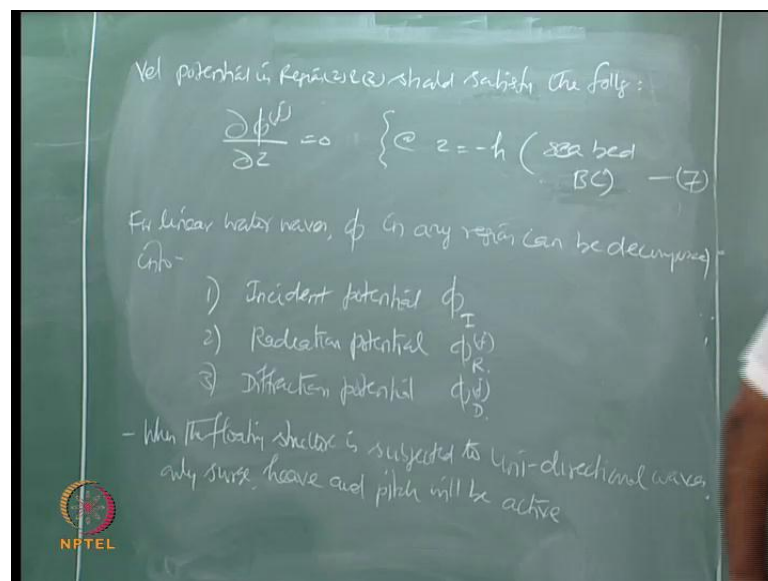 Vel potential in Region (2) & (3) should satisfy the follg:
∂φ^(j)
∂z = 0 { @ z = -h ( sea bed
BC) — (7)
For linear water waves, φ in any region can be decomposed
into -
1) Incident potential φ_I
2) Radiation potential φ_R^(j)
3) Diffraction potential φ_D^(j)
- When the floating structure is subjected to Uni-directional waves,
only surge, heave and pitch will be active
NPTEL